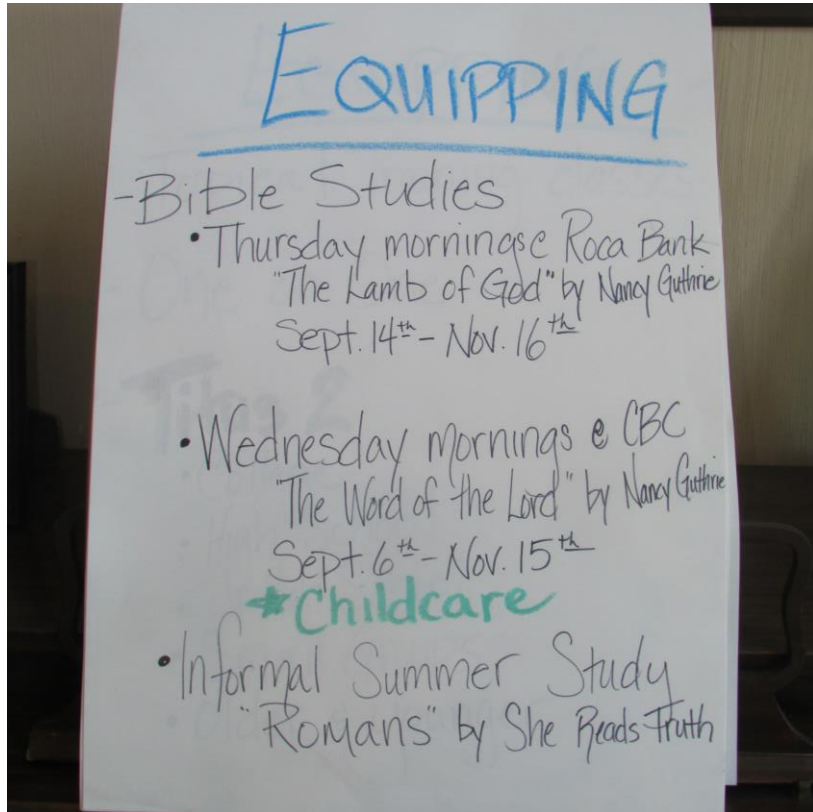 EQUIPPING
- Bible Studies
• Thursday mornings @ Roca Bank
"The Lamb of God" by Nancy Guthrie
Sept. 14th - Nov. 16th
• Wednesday mornings @ CBC
"The Word of the Lord" by Nancy Guthrie
Sept. 6th - Nov. 15th
* Childcare
• Informal Summer Study
"Romans" by She Reads Truth